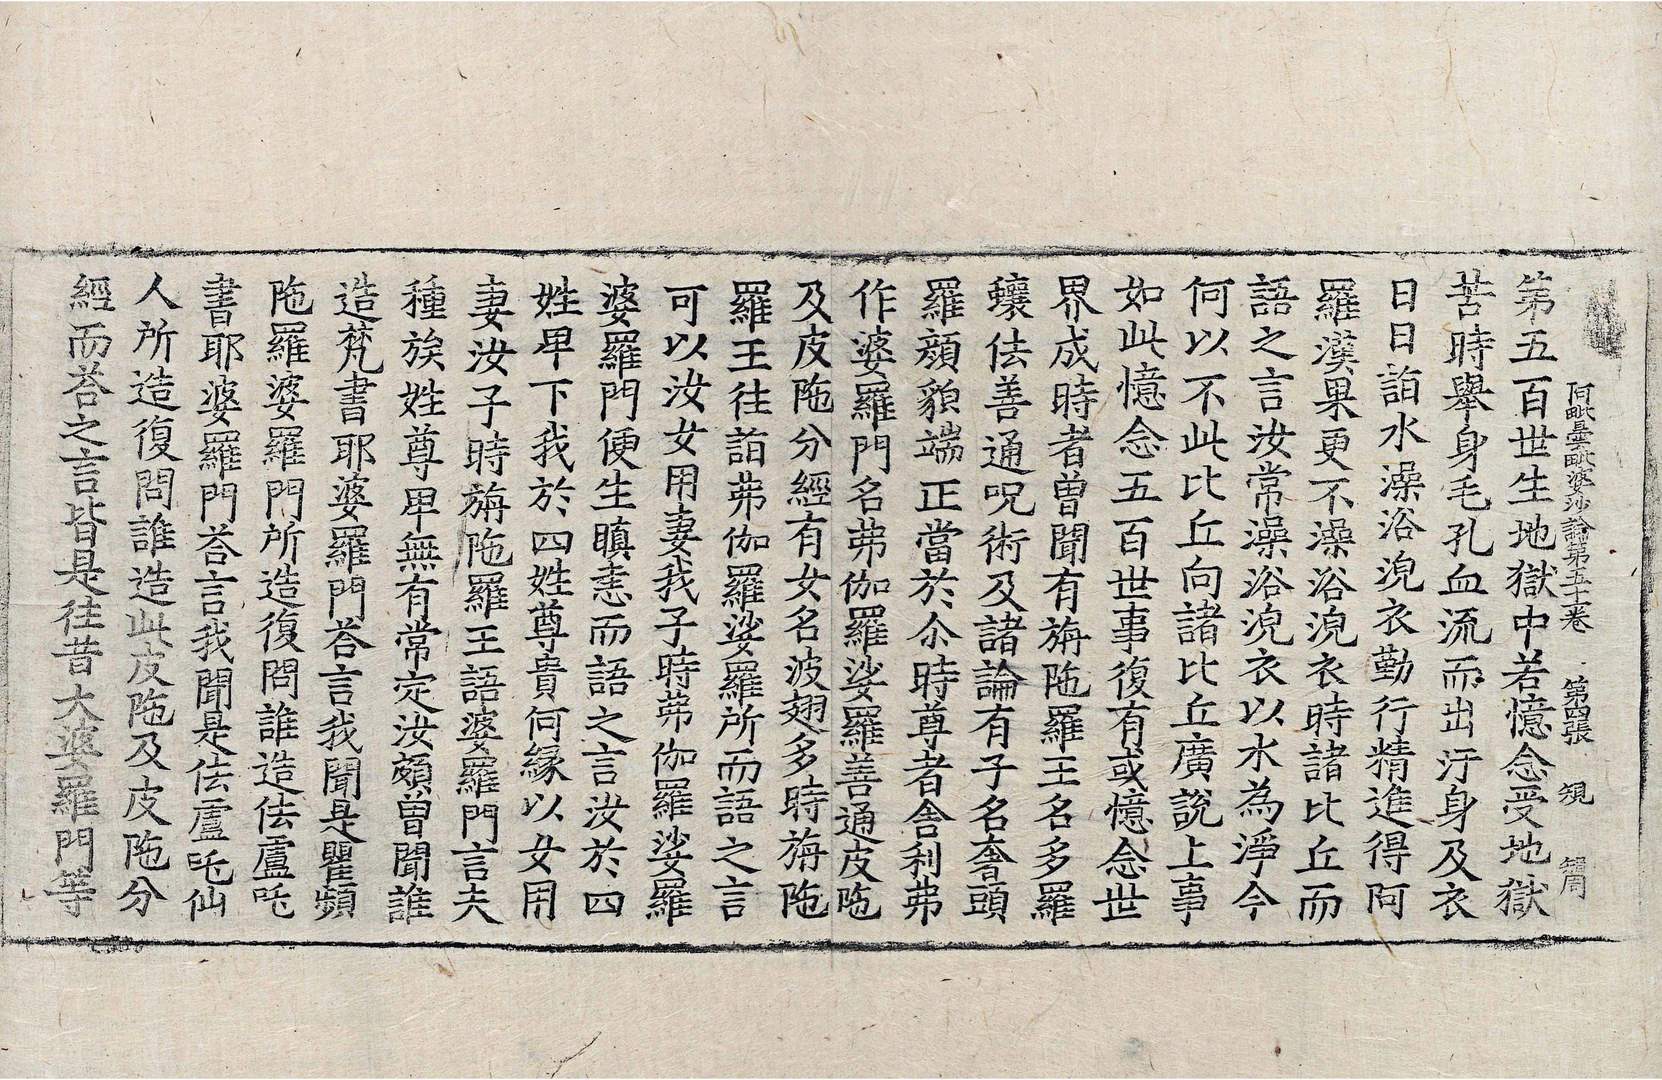 阿毗曇毗婆沙論第五十卷　第四張　規
第五百世生地獄中若憶念受地獄
苦時舉身毛孔血流而出汙身及衣
日日詣水澡浴浣衣勤行精進得阿
羅漢果更不澡浴浣衣時諸比丘而
語之言汝常澡浴浣衣以水為淨今
何以不此比丘向諸比丘廣說上事
如此憶念五百世事復有或憶念世
界成時者曾聞有旃陁羅王名多羅
蠰佉善通呪術及諸論有子名奢頭
羅顏貌端正當於尒時尊者舍利弗
作婆羅門名茀伽羅娑羅善通皮陁
及皮陁分經有女名波翅多時旃陁
羅王往詣茀伽羅娑羅所而語之言
可以汝女用妻我子時茀伽羅娑羅
婆羅門便生瞋恚而語之言汝於四
姓卑下我於四姓尊貴何緣以女用
妻汝子時旃陁羅王語婆羅門言夫
種族姓尊卑無有常定汝頗曾聞誰
造梵書耶婆羅門荅言我聞是瞿頻
陁羅婆羅門所造復問誰造佉盧吒
書耶婆羅門荅言我聞是佉盧吒仙
人所造復問誰造此皮陁及皮陁分
經而荅之言皆是往昔大婆羅門等